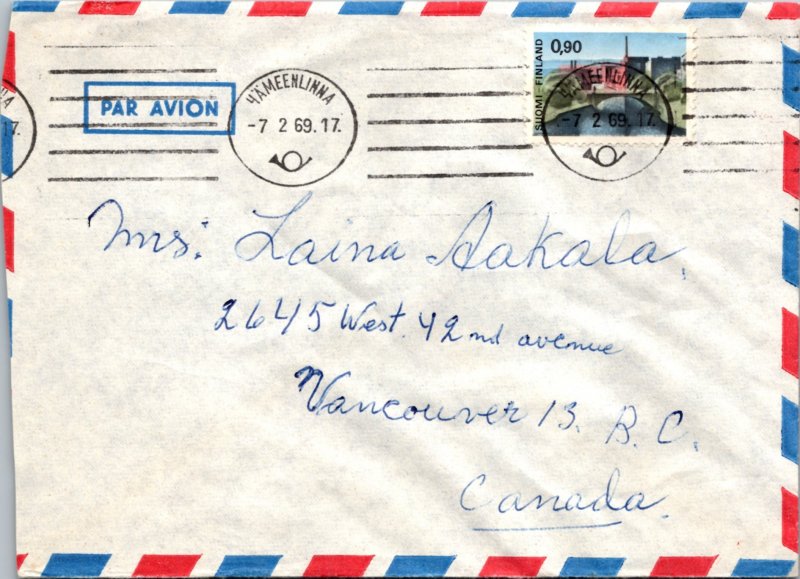 HÄMEENLINNA
-7 2 69.17.
PAR AVION
17.
SUOMI - FINLAND
0,90
HÄMEENLINNA
-7 2 69.17.
Mrs: Laina Aakala,
2645 West. 42nd avenue
Vancouver 13. B. C.
Canada